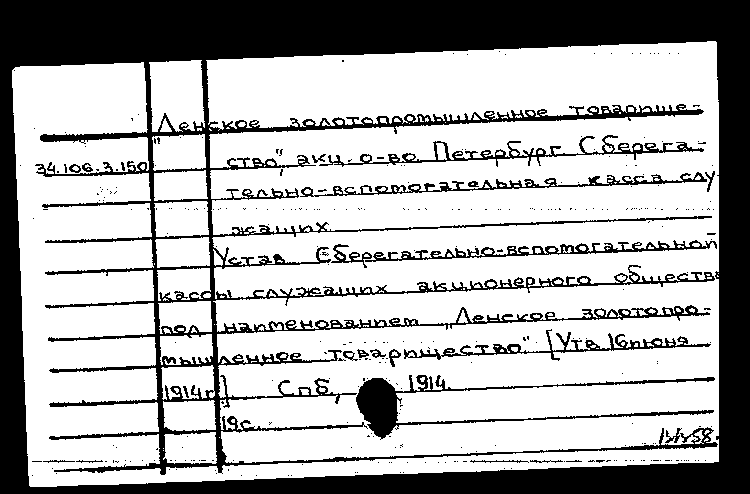 „Ленское золотопромышленное товарище-
34.106.3.150 ство", акц. о-во. Петербург. Сберега-
тельно-вспомогательная касса слу-
жащих.
Устав Сберегательно-вспомогательной
кассы служащих акционерного общества
под наименованием „Ленское золотопро-
мышленное товарищество". [Утв. 16 июня
1914 г.] Спб., 1914.
19 с.